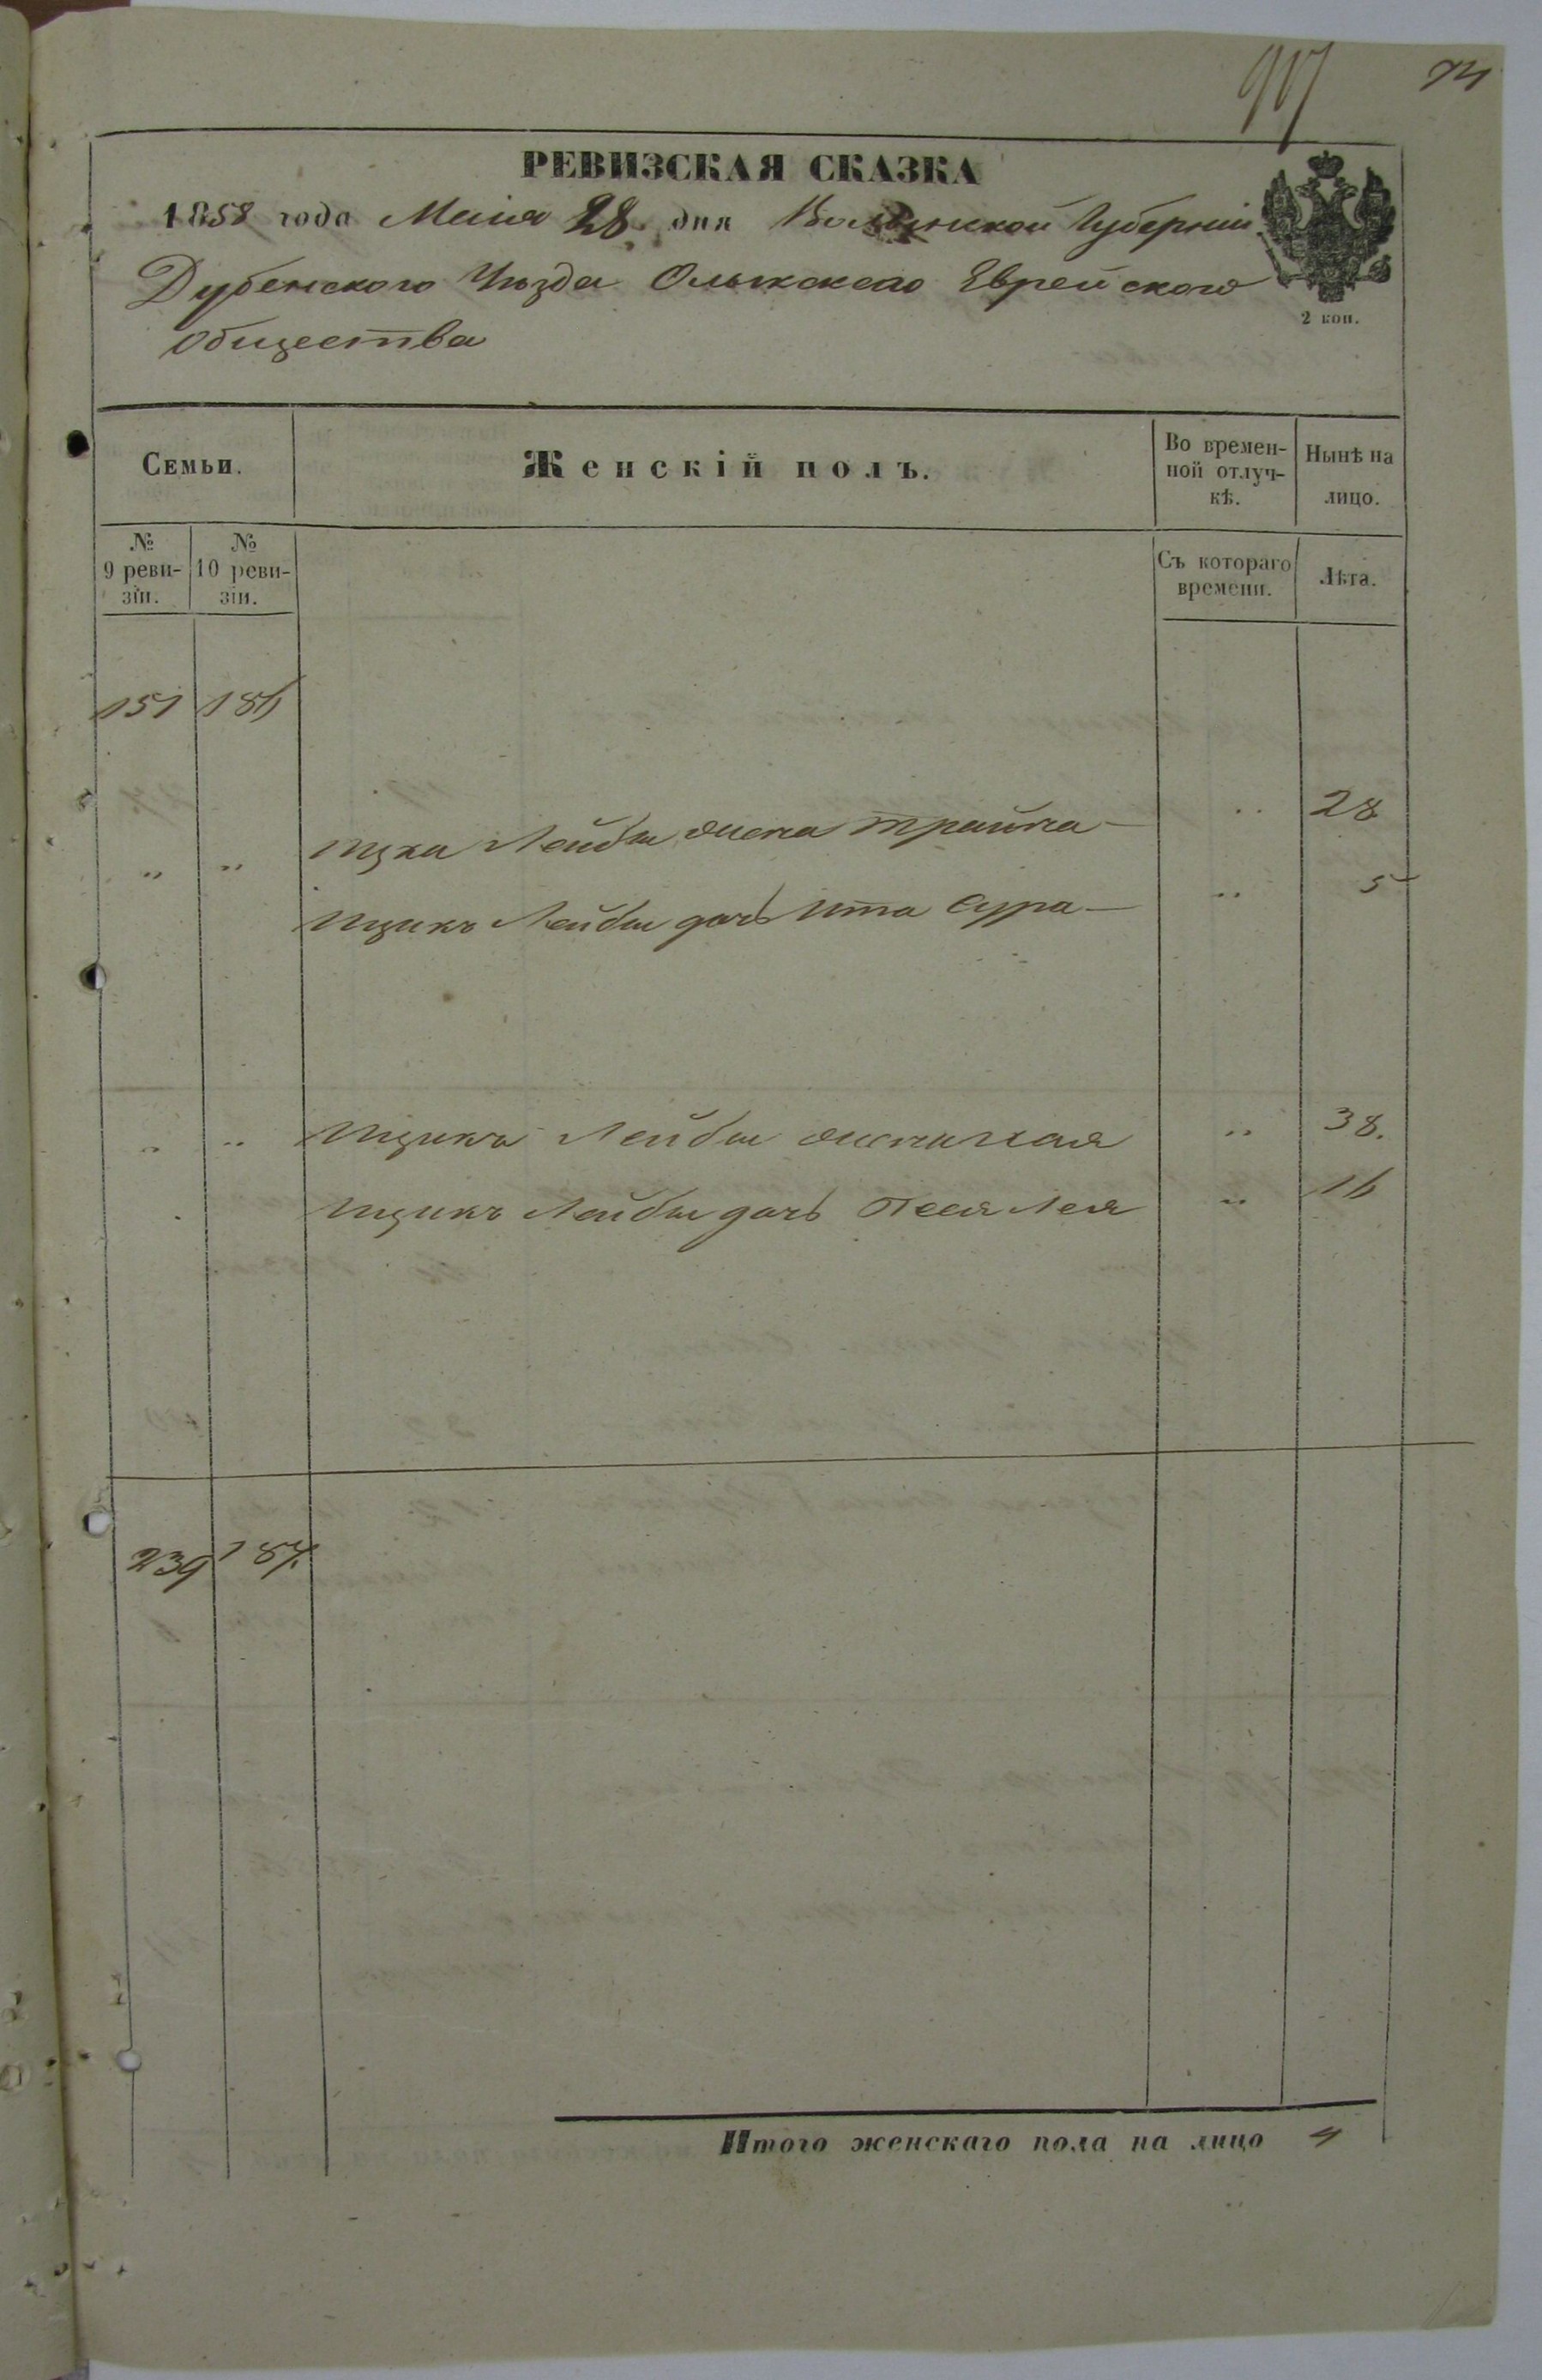 907 74
РЕВИЗСКАЯ СКАЗКА
1858 года Маия 28 дня Волынской Губерніи
Дубенского Уѣзда Олыкского Еврейского
общества
2 коп.
Семьи. Женскій полъ. Во времен-ной отлуч-кѣ. Нынѣ на лицо.
№ 9 реви-зіи. № 10 реви-зіи. Съ котораго времени. Лѣта.
151 186
" " Ицка Лейбы жена Трайна — " 28
Ицикъ Лейбы дочь Ита Сура — " 5
" " Ицикъ Лейбы жена Хая " 38.
Ицикъ Лейбы дочь Песя Лея " 16
239 187.
Итого женскаго пола на лицо 4